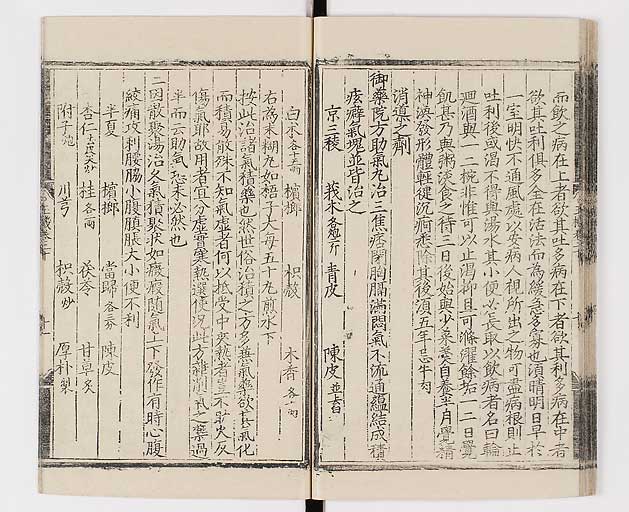 而飲之病在上者欲其吐多病在下者欲其利多病在中者
欲其吐利俱多全在活法而為緩急多寡也須晴明日早於
一室明快不通風處以安病人視所出之物可盡病根則止
吐利後或渴不得與湯水其小便必長取以飲病者名曰輪
廻酒與一二椀非惟可以止渴抑且可滌濯餘垢一二日覺
飢甚乃與粥淡食之待三日後始與少菜羹自養半月覺精
神渙發形體輕健沉痾悉除其後須五年忌牛肉
消導之劑
御藥院方助氣丸治三焦痞閉胸膈滿悶氣不流通蘊結成積
痃癖氣塊並皆治之
京三稜 莪朮各炮 青皮 陳皮並去白
白朮各 檳榔 枳殼 木香各
右為末糊丸如梧子大每五十丸煎水下
按此治諸氣積藥也然世俗治積之方多無氣藥欲其氣化
而積易散殊不知氣虛者何以抵受中
傷氣耶故用者宜分虛實寒熱選使況此方雜削氣之藥過
半而云助氣恐未必然也
三因散聚湯治久氣積聚狀如癥瘕隨氣上下發作有時心腹
絞痛攻刺腰脇小腹䐜脹大小便不利
半夏 檳榔 當歸各 陳皮
杏仁 桂各 茯苓 甘草炙
附子炮 川芎 枳殼炒 厚朴製